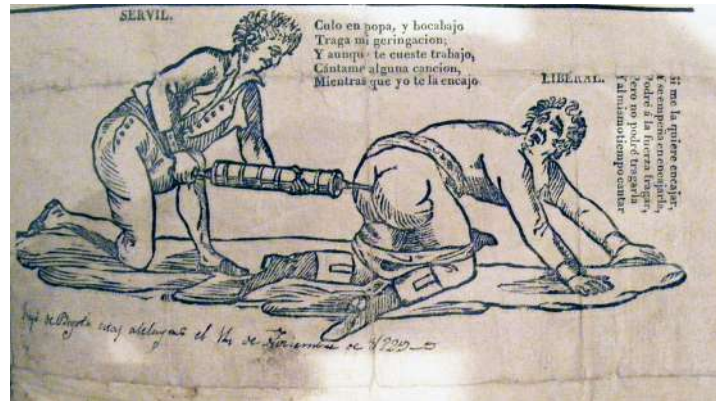 SERVIL.
Culo en popa, y bocabajo
Traga mi geringacion;
Y aunque te cueste trabajo,
Cántame alguna cancion,
Mientras que yo te la encajo.
LIBERAL.
Si me la quiere encajar,
Y se empeña en encajarla,
Podré á la fuerza tragar,
Pero no podré tragarla
Y al mismo tiempo cantar
de Bogotá el 14 de de 1829